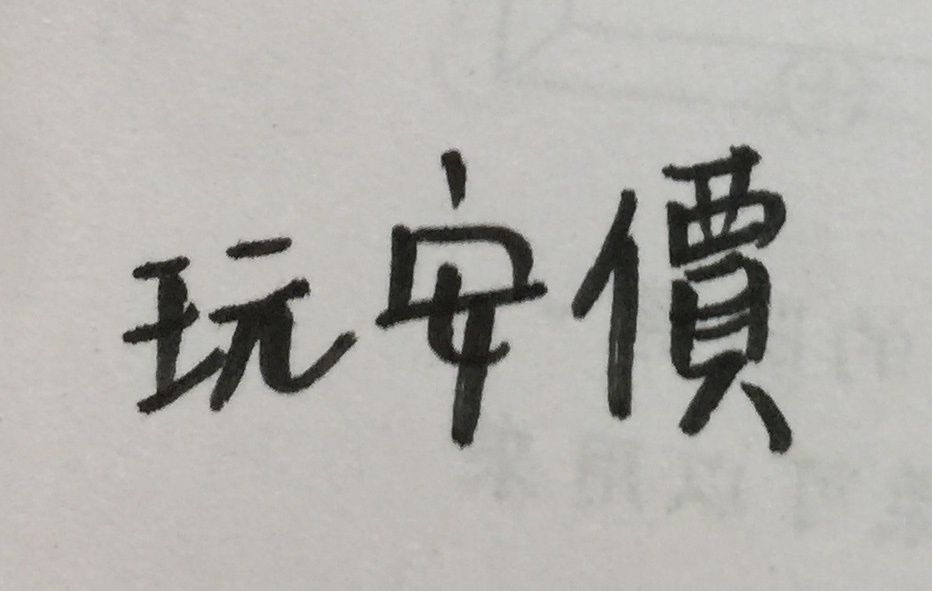 玩安價